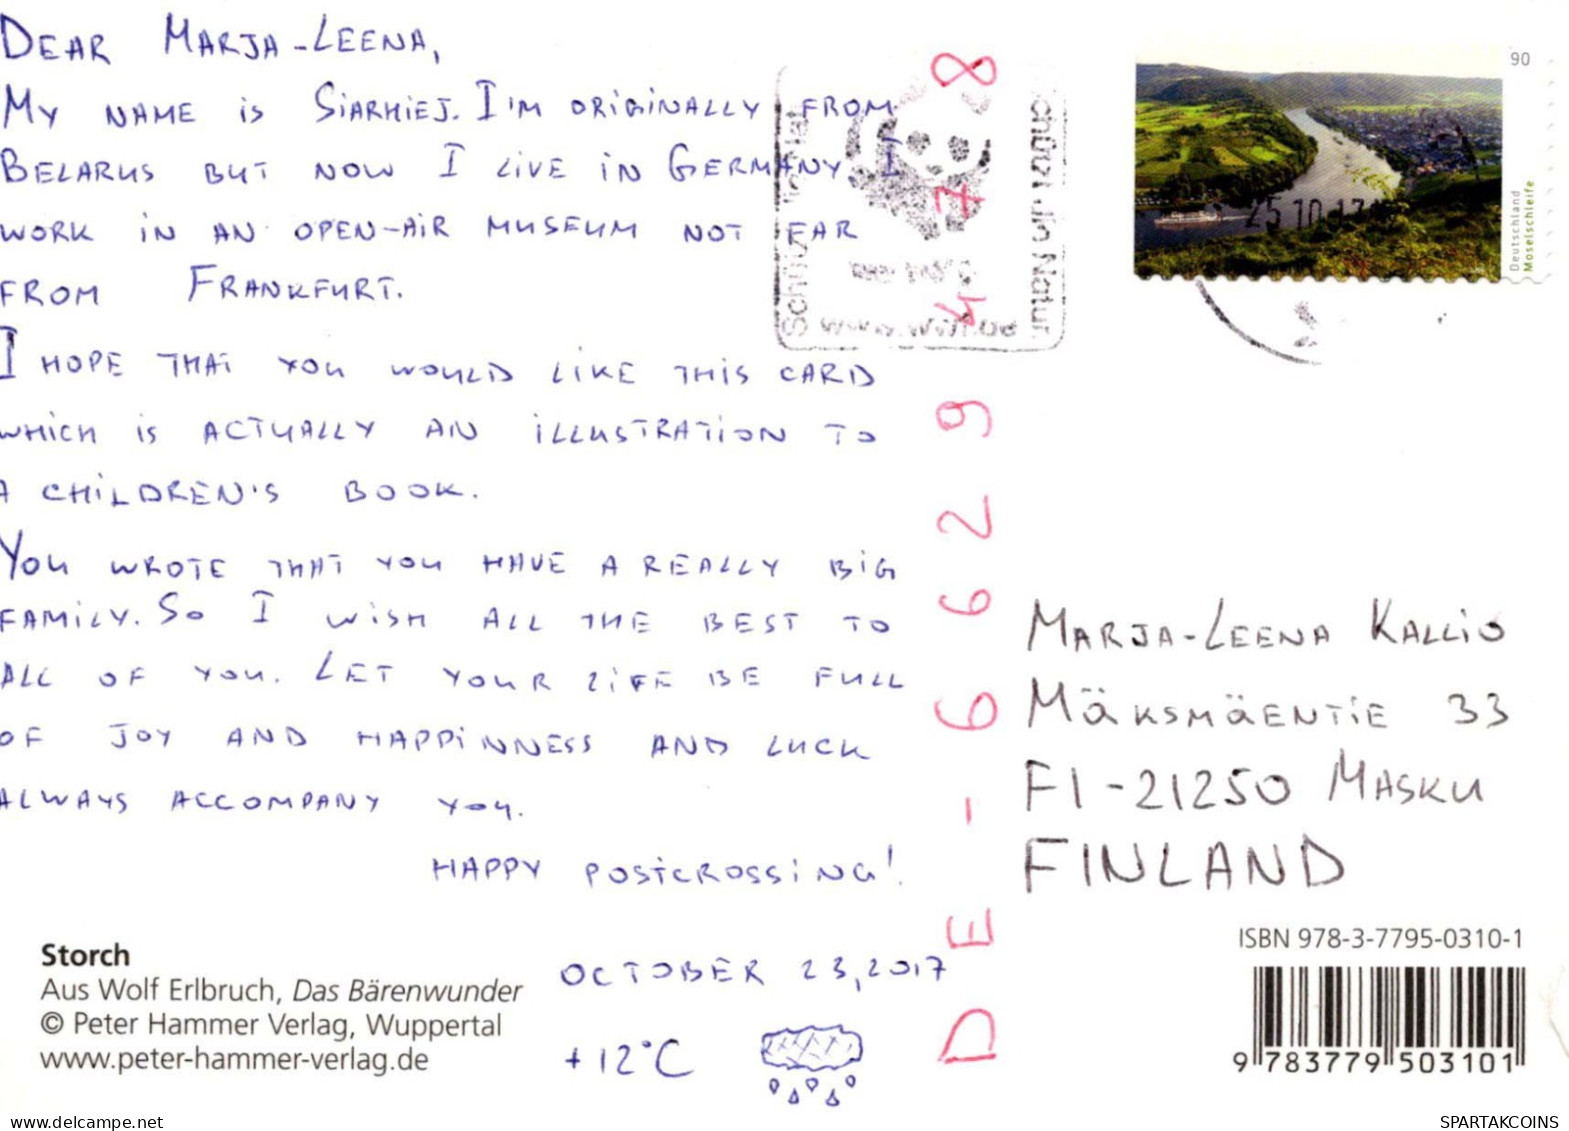 DEAR MARJA-LEENA,
MY NAME IS SIARHIEJ. I'M ORIGINALLY FROM
BELARUS BUT NOW I LIVE IN GERMANY I
WORK IN AN OPEN-AIR MUSEUM NOT FAR
FROM FRANKFURT.
I HOPE THAT YOU WOULD LIKE THIS CARD
WHICH IS ACTUALLY AN ILLUSTRATION TO
A CHILDREN'S BOOK.
YOU WROTE THAT YOU HAVE A REALLY BIG
FAMILY. SO I WISH ALL THE BEST TO
ALL OF YOU. LET YOUR LIFE BE FULL
OF JOY AND HAPPINNESS AND LUCK
ALWAYS ACCOMPANY YOU.
HAPPY POSTCROSSING!
OCTOBER 23, 2017
+12°C
Storch
Aus Wolf Erlbruch, Das Bärenwunder
© Peter Hammer Verlag, Wuppertal
www.peter-hammer-verlag.de
DE-6629478
in Natur
www.wwf.de
90
Deutschland
Moselschleife
25.10.17
MARJA-LEENA KALLIO
MÄKSMÄENTIE 33
FI-21250 MASKU
FINLAND
ISBN 978-3-7795-0310-1
9 783779 503101
oldthing.net
SPARTAKCOINS